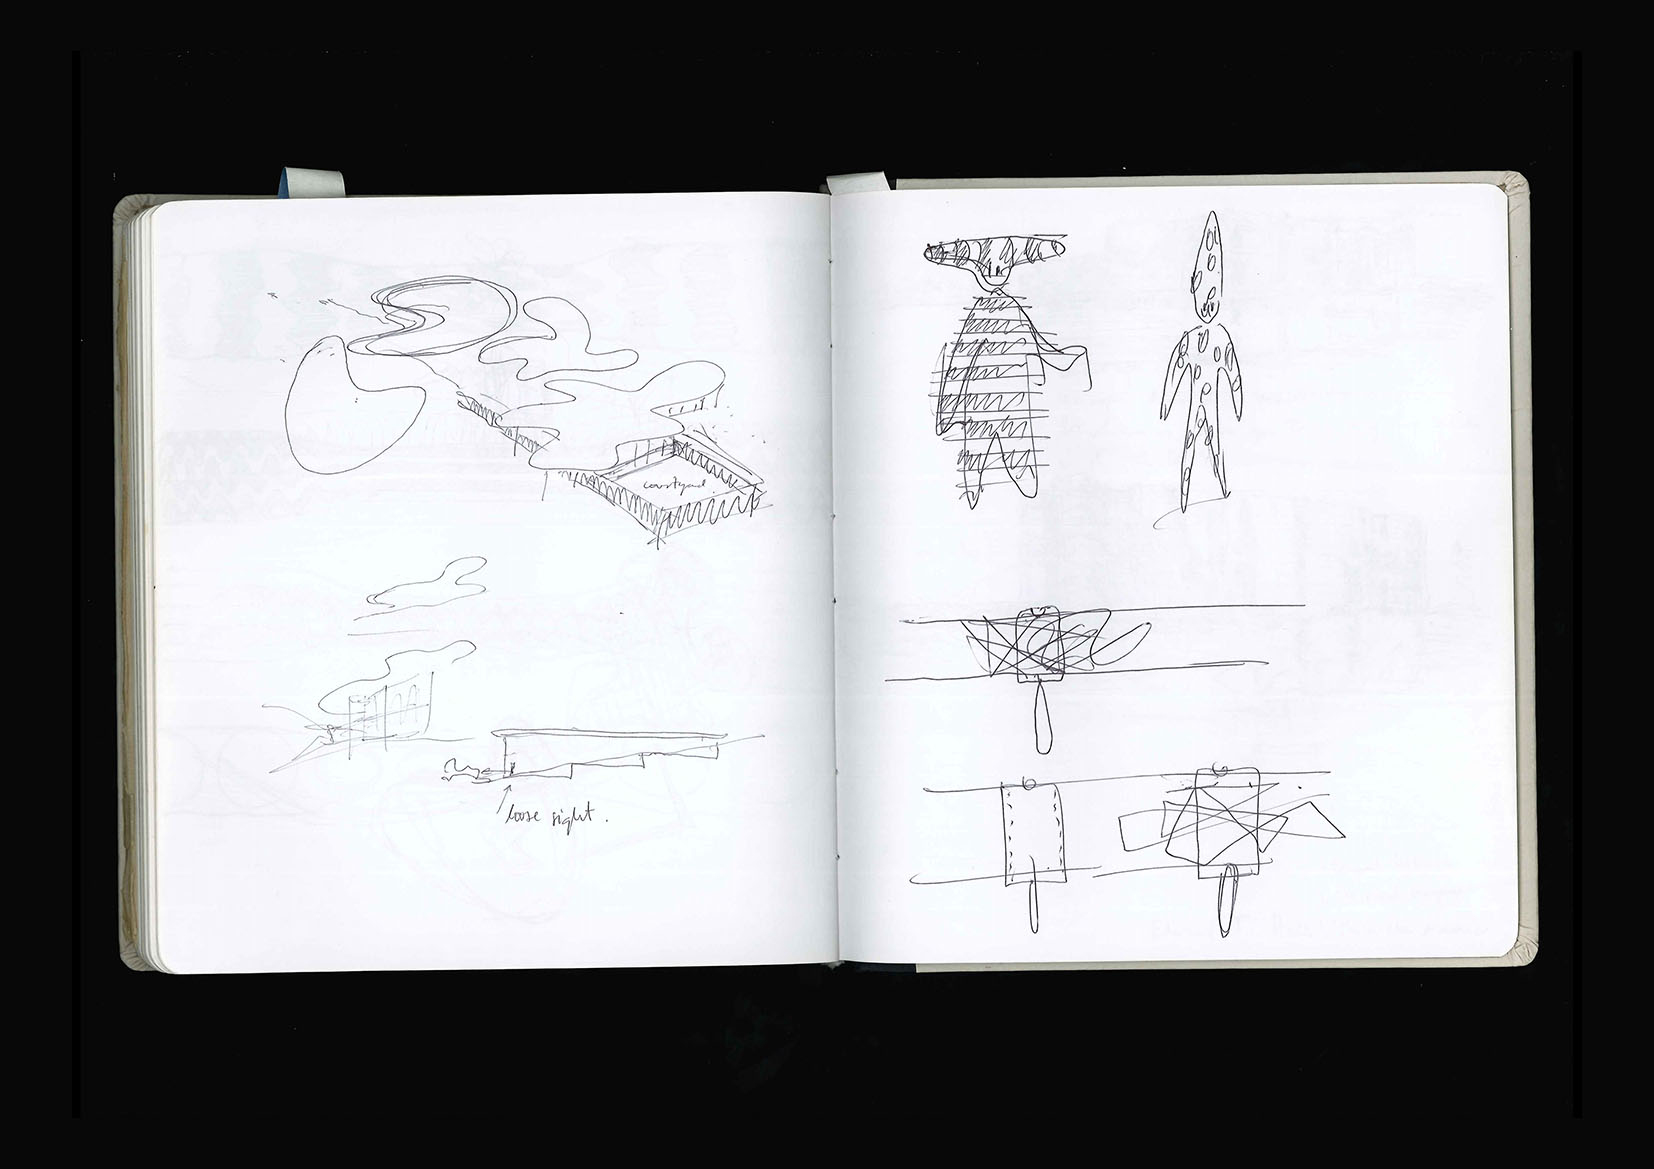 courtyard.
loose sight.